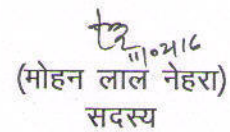 (मोहन लाल नेहरा)
सदस्य